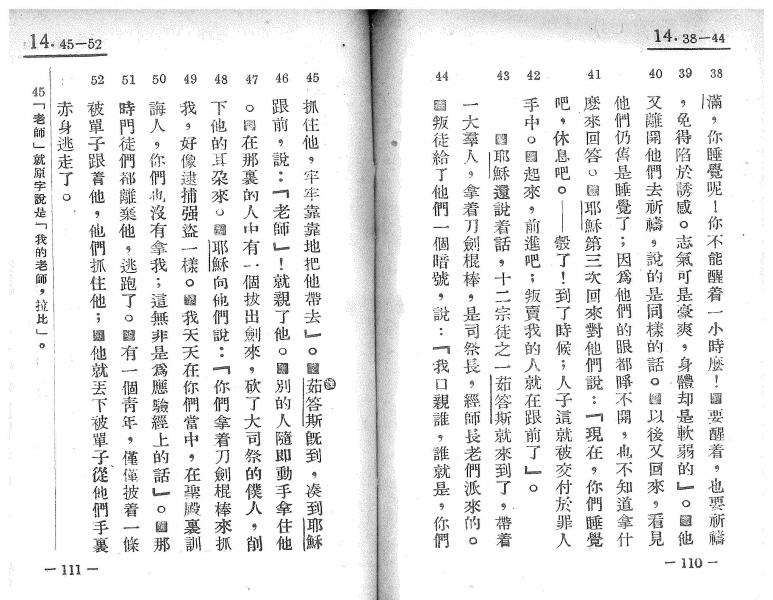 14. 38—44
38 滿,你睡覺呢!你不能醒着一小時麼!要醒着,也要祈禱
39 ,免得陷於誘惑。志氣可是豪爽,身體却是軟弱的」。他
40 又離開他們去祈禱,說的是同樣的話。以後又回來,看見
他們仍舊是睡覺了;因爲他們的眼都睜不開,也不知道拿什
41 麽來回答。耶穌第三次回來對他們說:「現在,你們睡覺
吧,休息吧。——彀了!到了時候;人子這就被交付於罪人
42 手中。起來,前進吧;叛賣我的人就在跟前了」。
43 耶穌還說着話,十二宗徒之一茹答斯就來到了,帶着
一大羣人,拿着刀劍棍棒,是司祭長,經師長老們派來的。
44 叛徒給了他們一個暗號,說:「我口親誰,誰就是,你們
—110—
14. 45—52
45 抓住他,牢牢靠靠地把他帶去」。茹答斯旣到,湊到耶穌
46 跟前,說:「老師」!就親了他。別的人隨即動手拿住他
47 。在那裏的人中有一個拔出劍來,砍了大司祭的僕人,削
48 下他的耳朶來。耶穌向他們說:「你們拿着刀劍棍棒來抓
49 我,好像逮捕强盜一樣。我天天在你們當中,在聖殿裏訓
50 誨人,你們也沒有拿我;這無非是爲應驗經上的話」。那
51 時門徒們都離棄他,逃跑了。有一個靑年,僅僅披着一條
52 被單子跟着他,他們抓住他;他就丟下被單子從他們手裏
赤身逃走了。
45「老師」就原字說是「我的老師,拉比」。
—111—